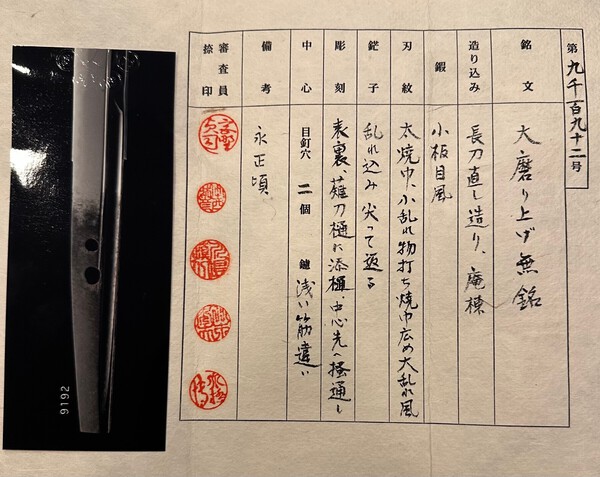 第九千百九十二号
銘文 大磨り上げ無銘
造り込み 長刀直し造り、庵棟
鍛 小板目風
刃紋 本焼巾、小乱れ物打ち焼巾広め大乱れ風
鋩子 乱れ込み尖って返る
彫刻 表裏、薙刀樋に添樋、中心先へ掻通し
中心 目釘穴 二個 鑢 浅い筋違い
備考 永正頃
審査員捺印
9192